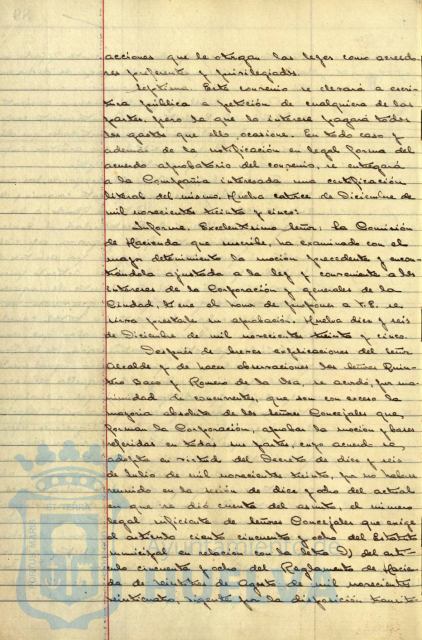 acciones que le otorgan las leyes como acreedo-
res preferente y privilegiado.
Séptima. Este convenio se elevará a escri-
tura pública a petición de cualquiera de las
partes, pero la que lo interese pagará todos
los gastos que ello ocasione. En todo caso y
además de la notificación en legal forma del
acuerdo aprobatorio del convenio, se entregará
a la Compañía interesada una certificación
literal del mismo. Huelva catorce de Diciembre de
mil novecientos treinta y cinco.
Informe. Excelentísimo Señor: la Comisión
de Hacienda que suscribe, ha examinado con el
mayor detenimiento la moción precedente y encon-
trándola ajustada a la ley y conveniente a los
intereses de la Corporación y generales de la
Ciudad, tiene el honor de proponer a V.E. se
sirva prestarle su aprobación. Huelva diez y seis
de Diciembre de mil novecientos treinta y cinco.
Después de breves explicaciones del Señor
Alcalde y de hacer observaciones los Señores Quin-
tero Saco y Romero de la Osa, se acordó, por una-
nimidad de concurrentes, que son con exceso la
mayoría absoluta de los Señores Concejales que
forman la Corporación, aprobar la moción y bases
referidas en todas sus partes, cuyo acuerdo se
adopta en virtud del Decreto de diez y seis
de Julio de mil novecientos treinta, por no haberse
reunido en la sesión de diez y ocho del actual
en que se dió cuenta del asunto, el número
legal suficiente de Señores Concejales que exige
el artículo ciento cincuenta y ocho del Estatuto
municipal en relación con la letra D) del artí-
culo cincuenta y ocho del Reglamento de Hacien-
da de veintitrés de Agosto de mil novecientos
veinticuatro, vigente por la disposición transito-